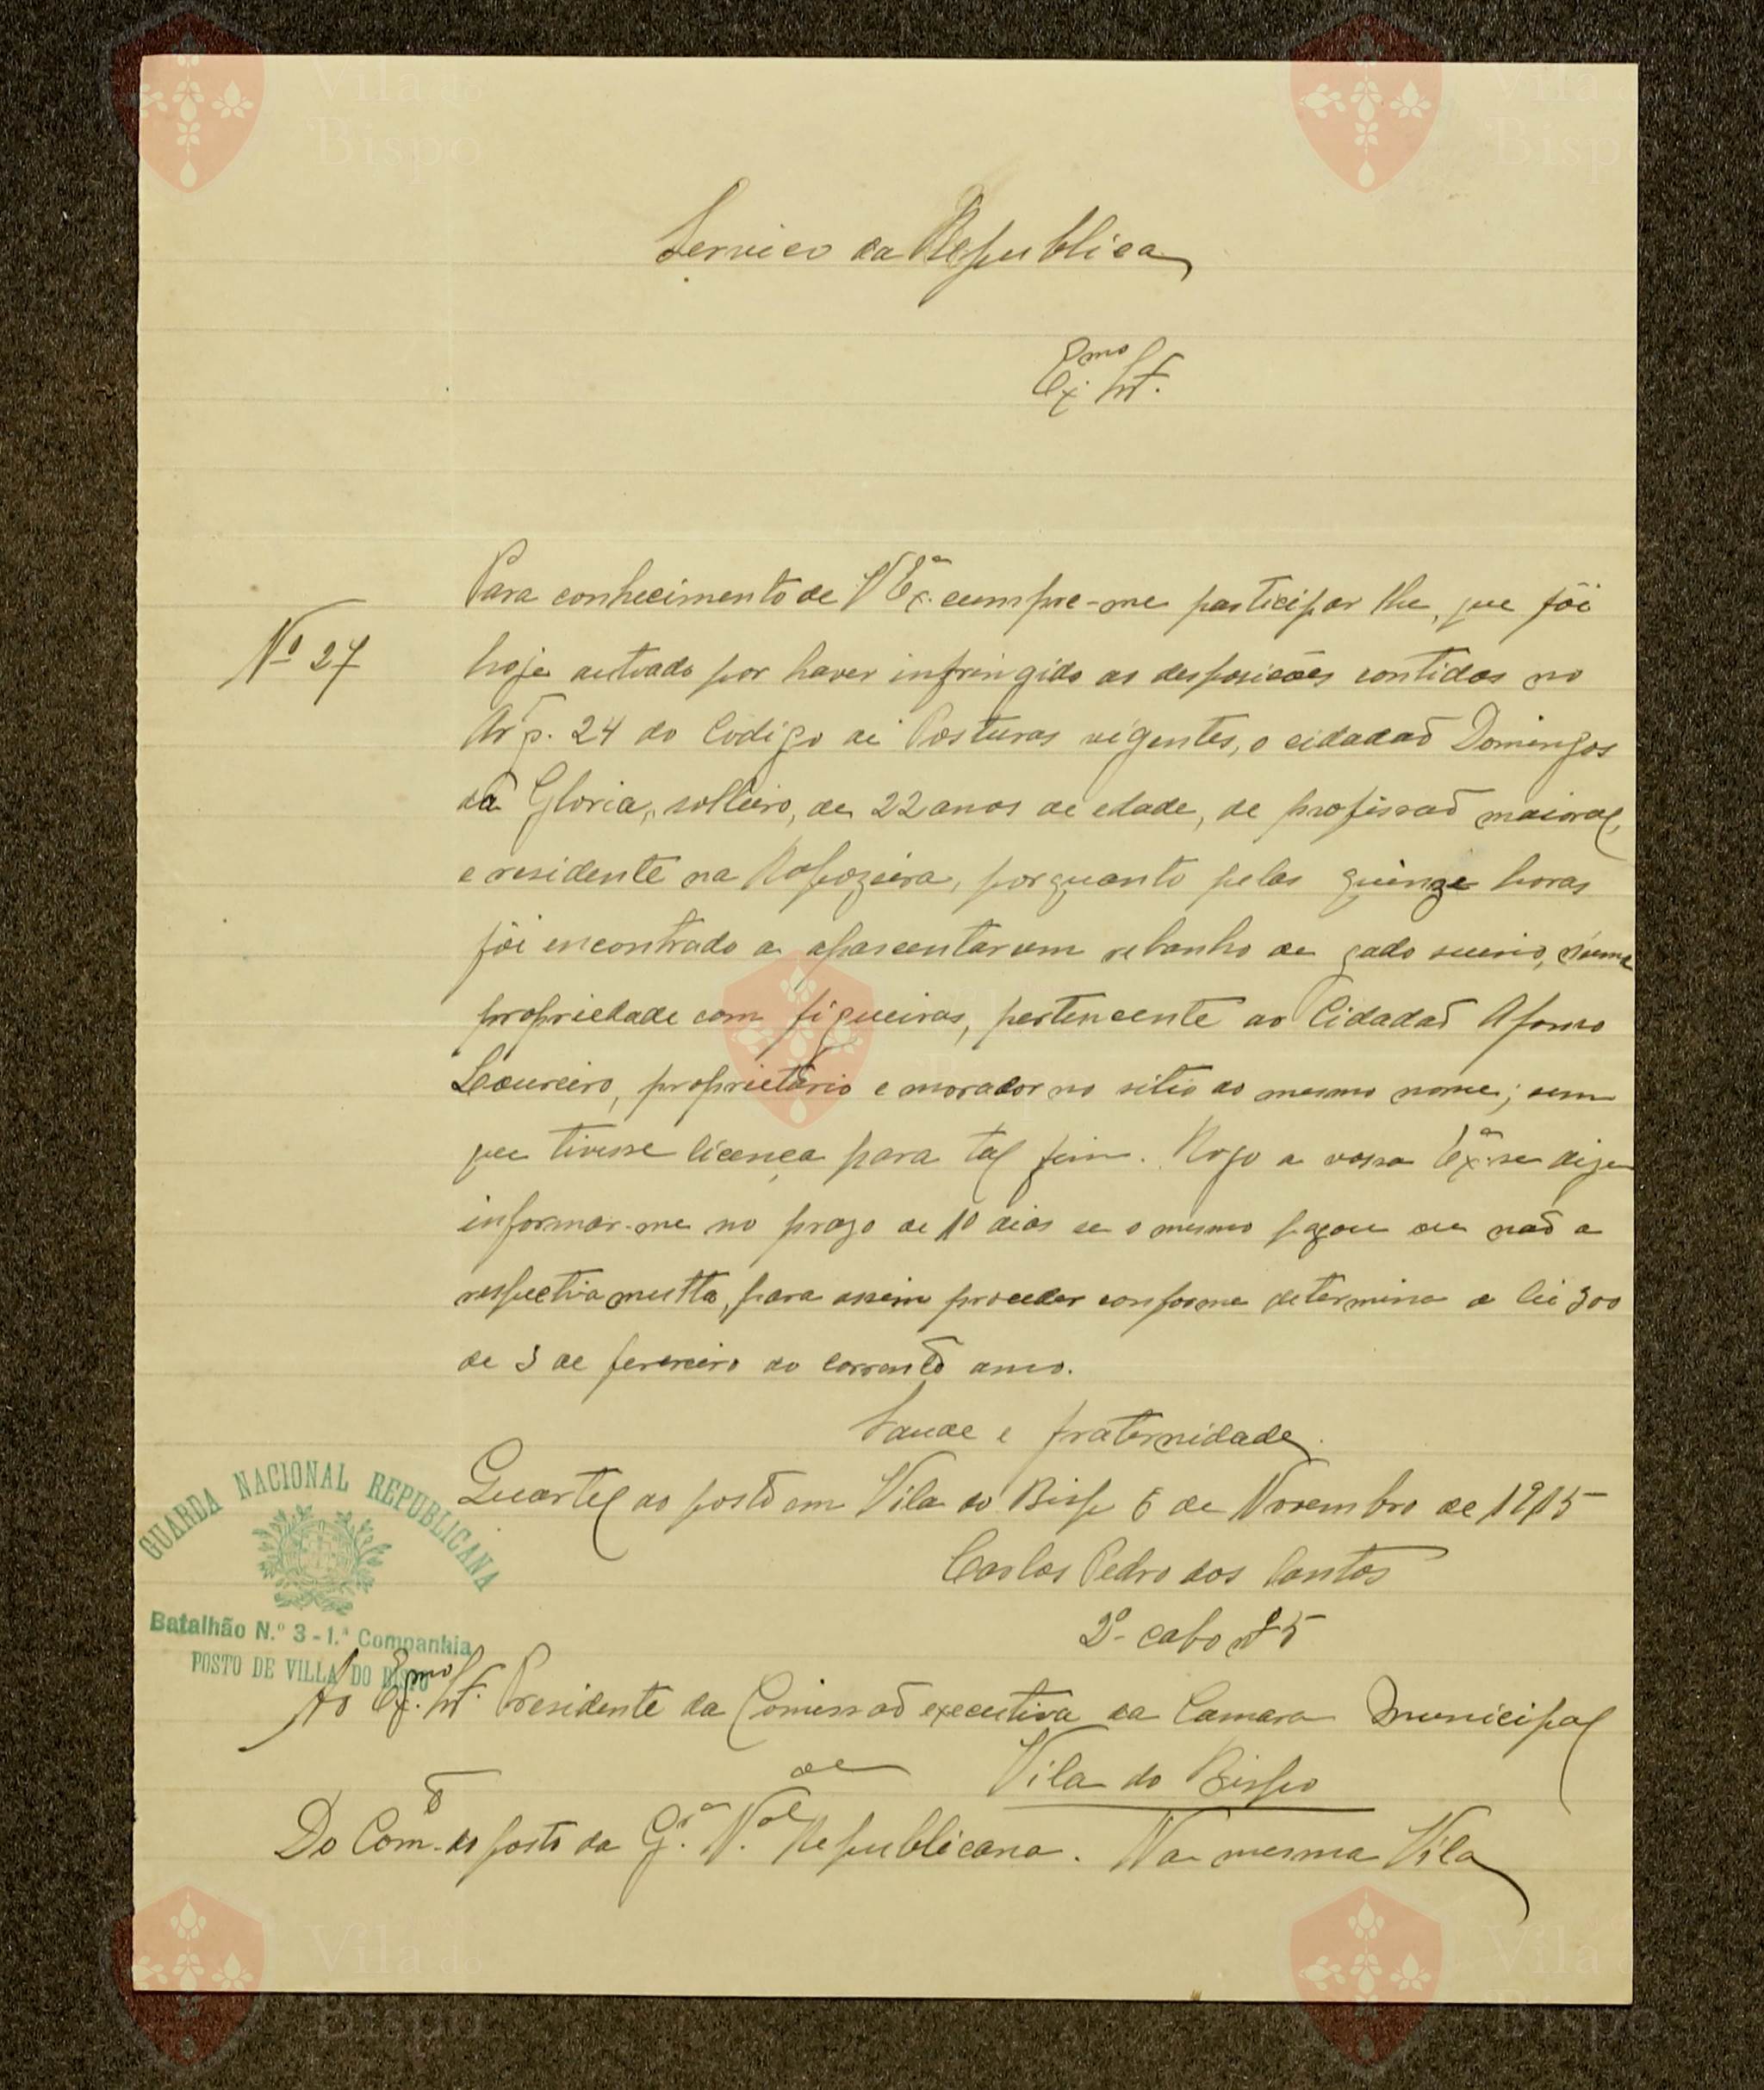 Vila do Bispo
Vila do Bispo
Servico da Republica
Exmo Snr.
Nº 27
Para conhecimento de V Exª. cumpre-me participar lhe, que fôi
hoje autuado por haver infringido as desposicões contidas no
Artº. 24 do Codigo de Posturas vigentes, o cidadaõ Domingos
da Gloria, solteiro, de 22 anos de edade, de profissaõ maioral,
e residente na Raposeira, porquanto pelas quinze horas
fôi encontrado a apascentar um rebanho de gado suino, n'uma
propriedade com figueiras, pertencente ao Cidadaõ Afonso
Loureiro, proprietário e morador no sitio do mesmo nome; sem
que tivesse licença para tal fim. Rogo a vossa Exª. se digne
informar-me no prazo de 10 dias se o mesmo pagou ou naõ a
respectiva multa, para assim proceder conforme determina a lei 300
de 3 de fevereiro do corrente anno.
Saude e fraternidade.
Quartel do posto em Vila do Bispo 6 de Novembro de 1915
Carlos Pedro dos Santos
2º cabo nº 5
GUARDA NACIONAL REPUBLICANA
Batalhão N.º 3 - 1.ª Companhia
POSTO DE VILLA DO BISPO
Ao Exmo. Snr. Presidente da Comissaõ executiva da Camara Municipal
de Vila do Bispo
Do Comº. do posto da Gª. Nal. Republicana. Na mesma Vila
Vila do Bispo
Vila do Bispo